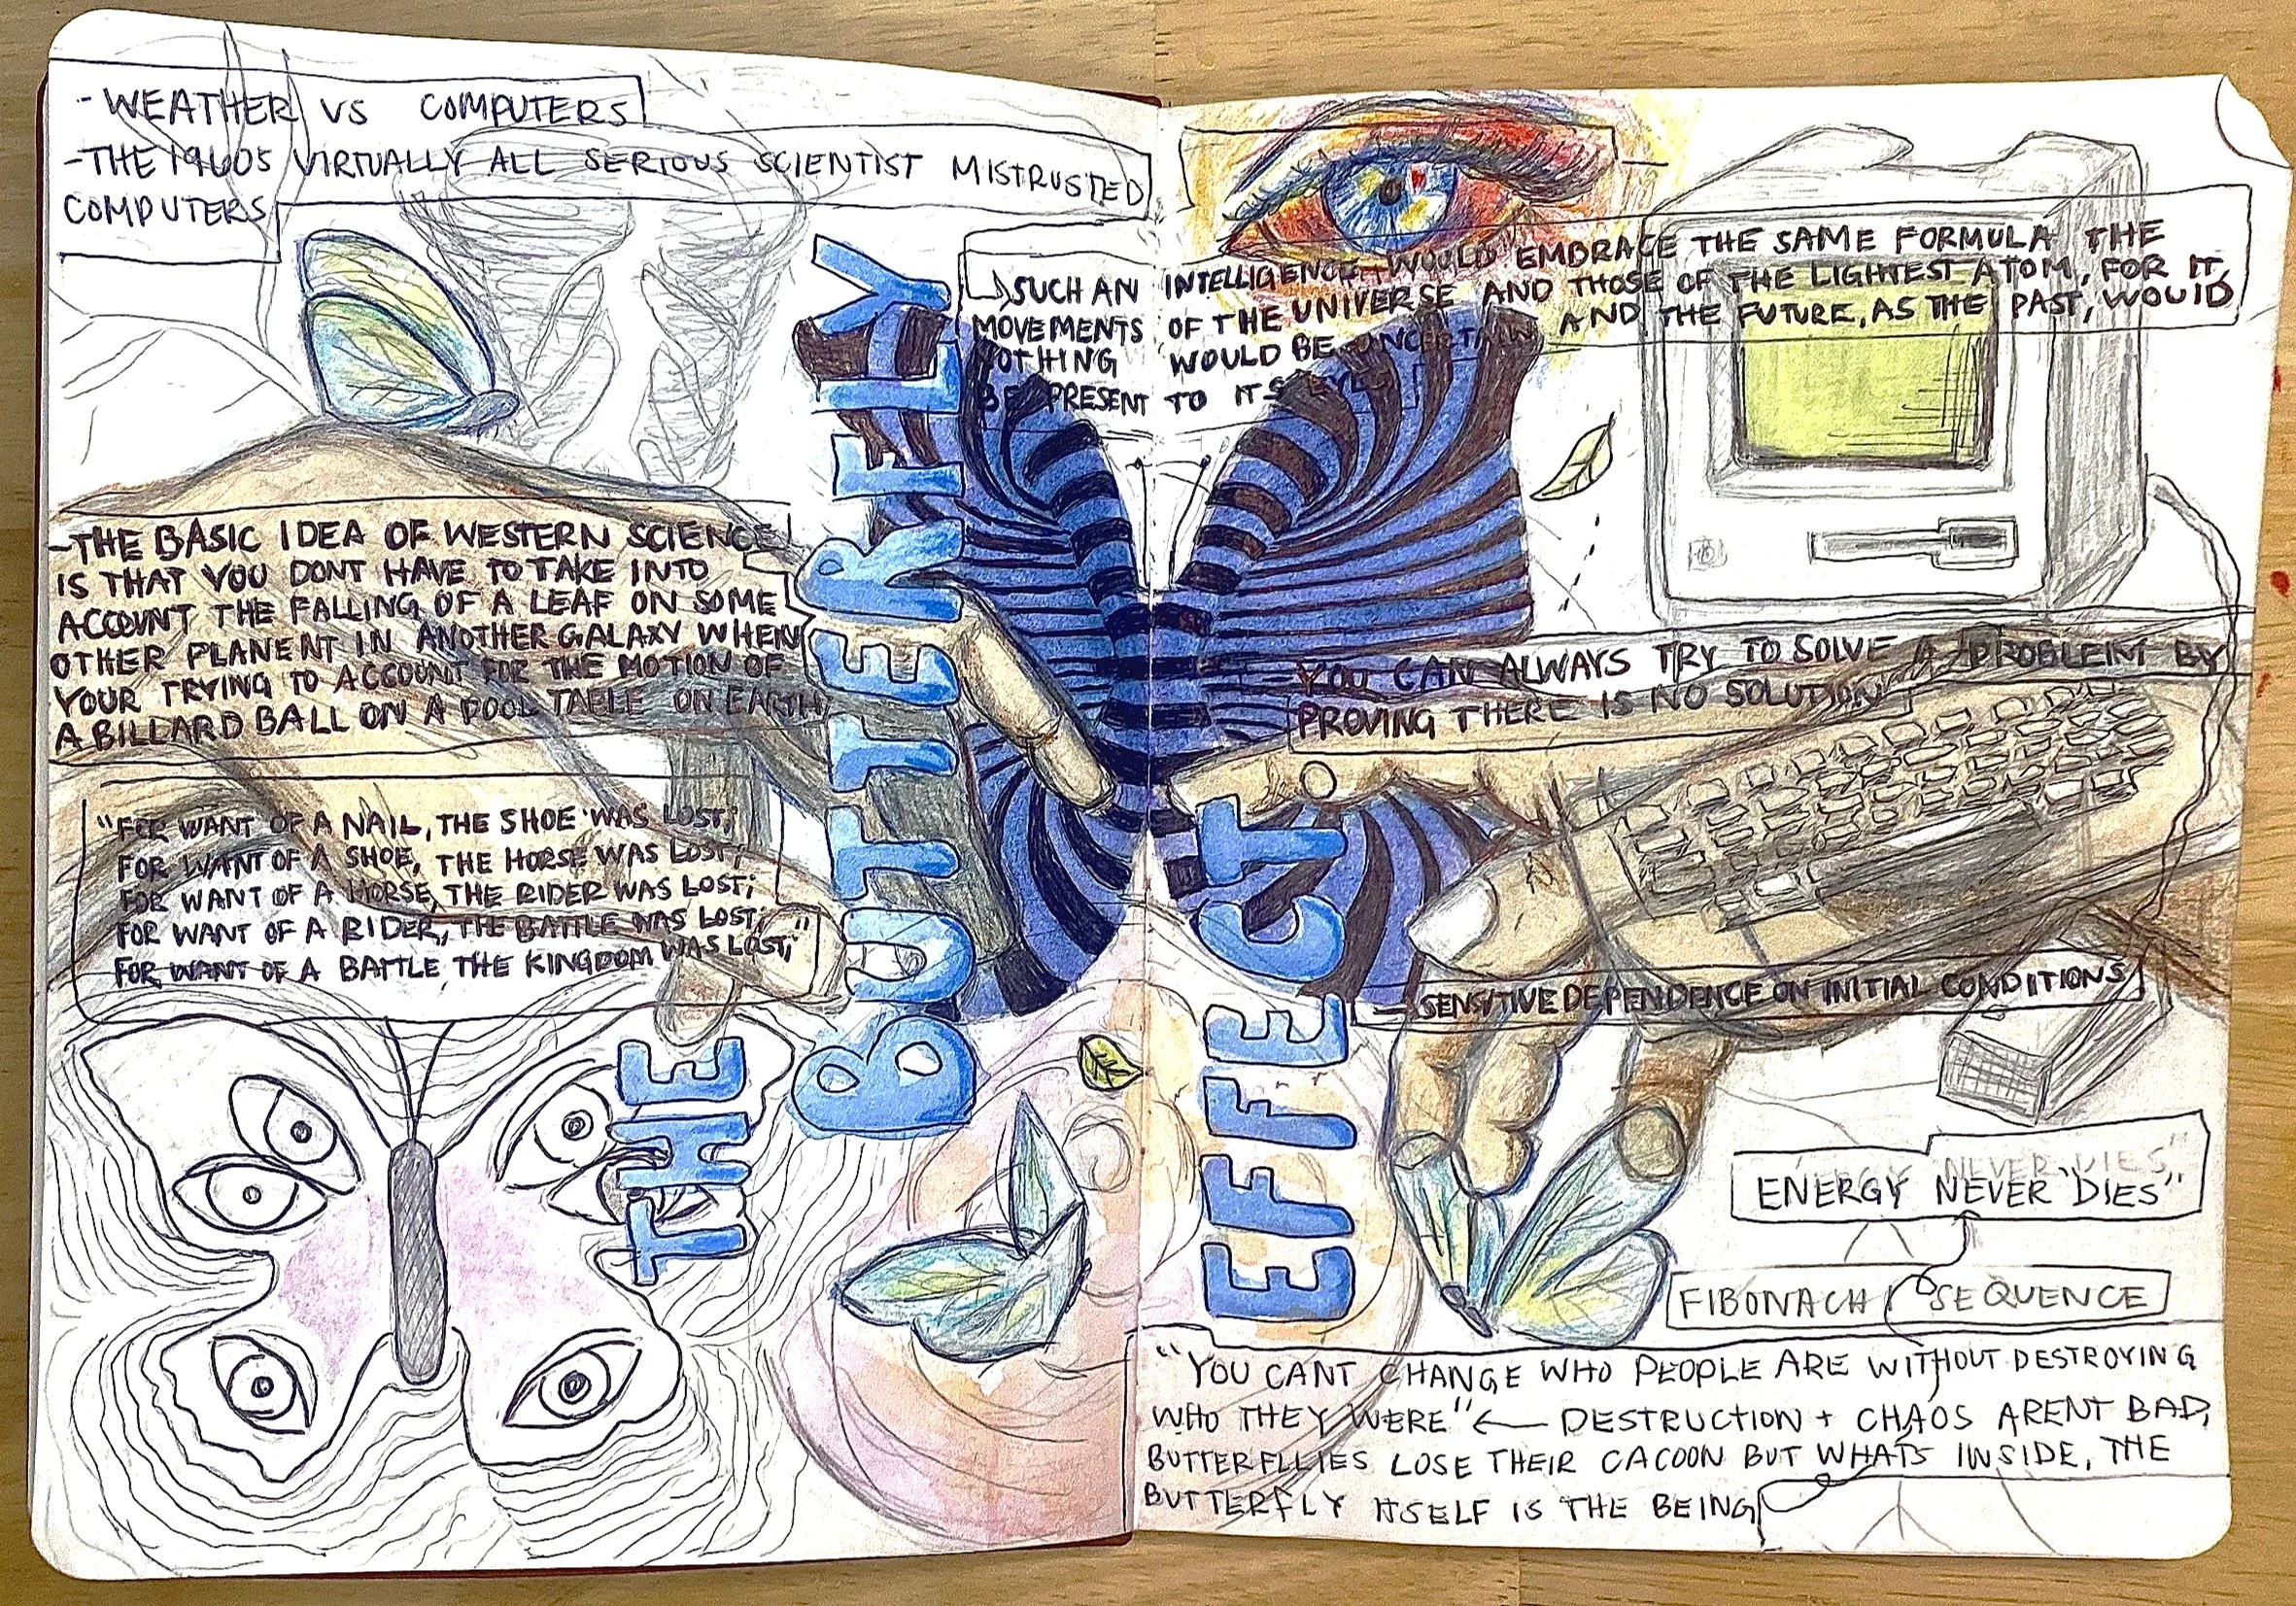 - WEATHER VS COMPUTERS
- THE 1960S VIRTUALLY ALL SERIOUS SCIENTIST MISTRUSTED
COMPUTERS
- THE BASIC IDEA OF WESTERN SCIENCE
IS THAT YOU DONT HAVE TO TAKE INTO
ACCOUNT THE FALLING OF A LEAF ON SOME
OTHER PLANENT IN ANOTHER GALAXY WHEN
YOUR TRYING TO ACCOUNT FOR THE MOTION OF
A BILLARD BALL ON A POOL TABLE ON EARTH
"FOR WANT OF A NAIL, THE SHOE WAS LOST;
FOR WANT OF A SHOE, THE HORSE WAS LOST;
FOR WANT OF A HORSE, THE RIDER WAS LOST;
FOR WANT OF A RIDER, THE BATTLE WAS LOST;
FOR WANT OF A BATTLE, THE KINGDOM WAS LOST;"
THE
BUTTERFLY
EFFECT
SUCH AN INTELLIGENCE WOULD EMBRACE THE SAME FORMULA THE
MOVEMENTS OF THE UNIVERSE AND THOSE OF THE LIGHTEST ATOM, FOR IT,
NOTHING WOULD BE UNCERTAIN AND THE FUTURE, AS THE PAST, WOULD
BE PRESENT TO ITS EYES
YOU CAN ALWAYS TRY TO SOLVE A PROBLEM BY
PROVING THERE IS NO SOLUTION
- SENSITIVE DEPENDENCE ON INITIAL CONDITIONS
NEVER DIES"
ENERGY NEVER DIES"
FIBONACHI SEQUENCE
"YOU CANT CHANGE WHO PEOPLE ARE WITHOUT DESTROYING
WHO THEY WERE" ← DESTRUCTION + CHAOS ARENT BAD,
BUTTERFLLIES LOSE THEIR CACOON BUT WHATS INSIDE, THE
BUTTERFLY ITSELF IS THE BEING